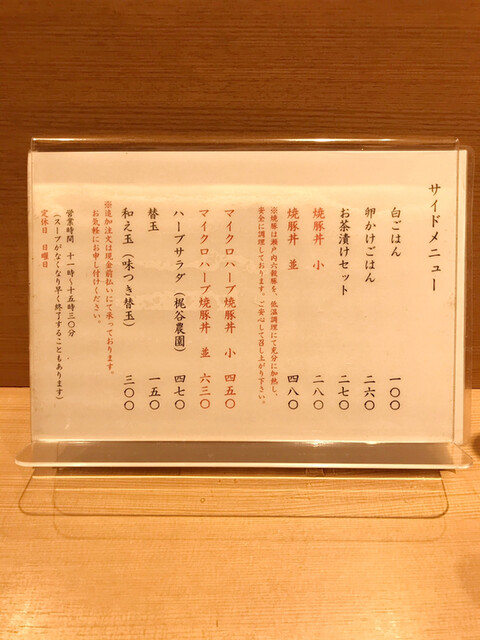 サイドメニュー
白ごはん 一〇〇
卵かけごはん 二六〇
お茶漬けセット 二七〇
焼豚丼 小 二八〇
焼豚丼 並 四八〇
※焼豚は瀬戸内六穀豚を、低温調理にて充分に加熱し、
安全に調理しております。ご安心して召し上がり下さい。
マイクロハーブ焼豚丼 小 四五〇
マイクロハーブ焼豚丼 並 六三〇
ハーブサラダ（梶谷農園） 四七〇
替玉 一五〇
和え玉（味つき替玉） 三〇〇
※追加注文は現金前払いにて承っております。
お気軽にお申し付けください。
営業時間 十一時〜十五時三〇分
（スープがなくなり早く終了することもあります）
定休日 日曜日